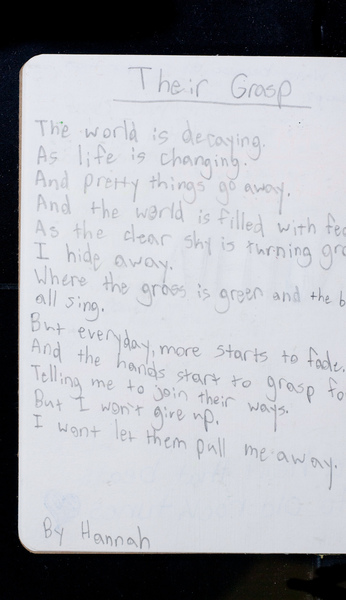 Their Grasp
The world is decaying.
As life is changing.
And pretty things go away.
And the world is filled with
As the clear sky is turning
I hide away.
Where the grass is green and the
all sing.
But everyday, more starts to fade.
And the hands start to grasp
Telling me to join their ways.
But I won't give up.
I wont let them pull me away.
By Hannah